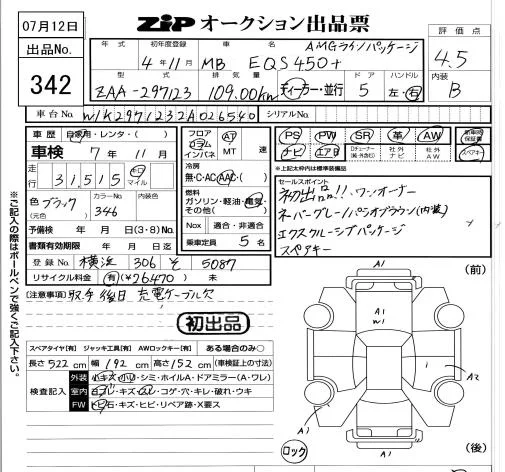 07月12日
ZiP オークション出品票
出品No.
342
評価点
4.5
内装
B
年式 初年度登録 車名
4年11月 MB EQS450+ AMGラインパッケージ
型式 排気量 ドア ハンドル
ZAA-297123 109.00kw ディーラー・並行 5 左・右
車台No. W1K2971232A026540 シリアルNo.
車歴 自家用・レンタ・( )
車検 7年11月
走行 31,515 キロ マイル
色 ブラック カラーNo. 346 内装色
(元色)
予備検 年 月 日(3・8)No.
書類有効期限 年 月 日迄
登録No. 横浜 306 そ 5087
リサイクル料金 有(¥26470) 未
フロア コラム インパネ AT MT 速
冷房
無・C・AC・AAC・( )
燃料
ガソリン・軽油・電気・その他( )
Nox 適合・非適合
乗車定員 5名
PS PW SR 革 AW 新車時保証書
ナビ エアB Dチューナー(純・外含む) 社外ナビ 社外AW スペアキー
*上記太枠内は標準装備品
セールスポイント
初出品!!、ワンオーナー
ネバーグレー/バシオブラウン(内装)
エクスクルーシブパッケージ
スペアキー
[注意事項] 取・後日 充電ケーブル欠
初出品
スペアタイヤ[有] ジャッキ工具[有] AWロックキー[有] ある場合のみ○
長さ522cm 幅192cm 高さ152cm (車検証上の寸法)
検査記入
外装 小キズ・小凹・シミ・ホイルA・ドアミラー(A・ワレ)
室内 白ブレ・キズ・スレ・コゲ・穴・キレ・破れ・ウキ
FW トビ石・キズ・ヒビ・リペア跡・X要ス
(前)
A1
A1
W1
A2
A1
A1
(後)
ロック
※ご記入の際はボールペンで強くご記入下さい。